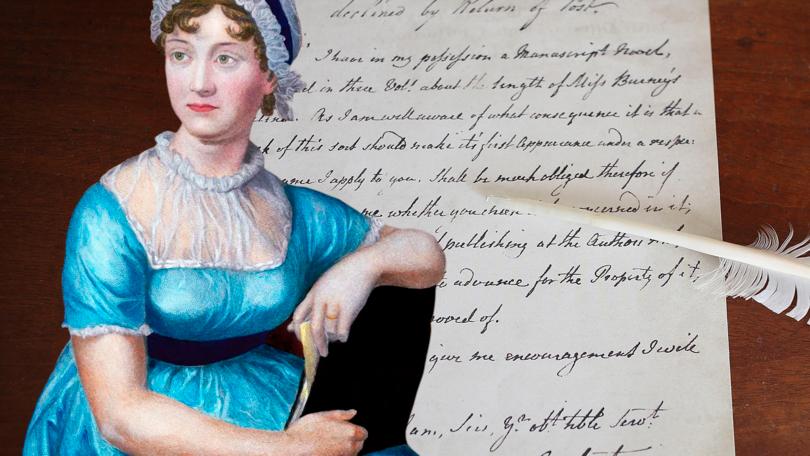 declined by Return of Post.
I have in my possession a Manuscript Novel,
d in three Vols. about the length of Miss Burney's
lina. As I am well aware of what consequence it is that a
k of this sort should make it's first Appearance under a respec
ame I apply to you. Shall be much obliged therefore if
me whether you choose concerned in it;
publishing at the Author's
advance for the Property of it,
roved of.
give me encouragement I will
am, Sir, Yr. obt. hble Servt.